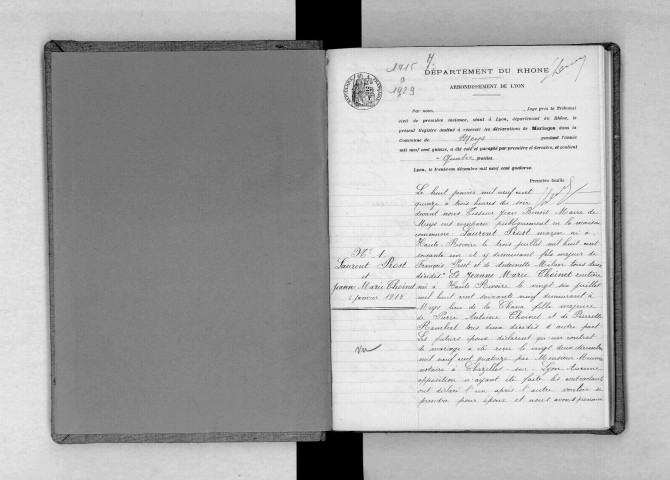 1915
à
1929
DÉPARTEMENT DU RHONE
ARRONDISSEMENT DE LYON
Par nous, , Juge près le Tribunal
civil de première instance, séant à Lyon, département du Rhône, le
présent Registre destiné à recevoir les déclarations de Mariages dans la
Commune de Meys pendant l'année
mil neuf cent quinze, a été coté et paraphé par première et dernière, et contient
quatre feuilles.
Lyon, le trente-un décembre mil neuf cent quatorze.
Première feuille
Le huit janvier mil neuf cent
quinze à trois heures du soir
devant nous Tisseur Jean Benoit Maire de
Meys ont comparu publiquement en la maison
commune: Laurent Prost maçon né à
Haute Rivoire le trois juillet mil huit cent
soixante un et y demeurant fils majeur de
François Prost et de Antoinette tous deux
décédés. Et Jeanne Marie Thoinet rentière
née à Haute Rivoire le vingt six juillet
mil huit cent soixante neuf demeurant à
Meys lieu de la Chana fille majeure
de Pierre Antoine Thoinet et de Pierrette
Rambert tous deux décédés d'autre part
Les futurs époux déclarent qu'un contrat
de mariage a été reçu le vingt deux décembre
mil neuf cent quatorze par Monsieur
notaire à Chazelles-sur-Lyon. Aucune
opposition n'ayant été faite les contractants
ont déclaré l'un après l'autre vouloir se
prendre pour époux et nous avons prononcé
N° 1
Laurent Prost
et
Jeanne Marie Thoinet
8 janvier 1915
Vu